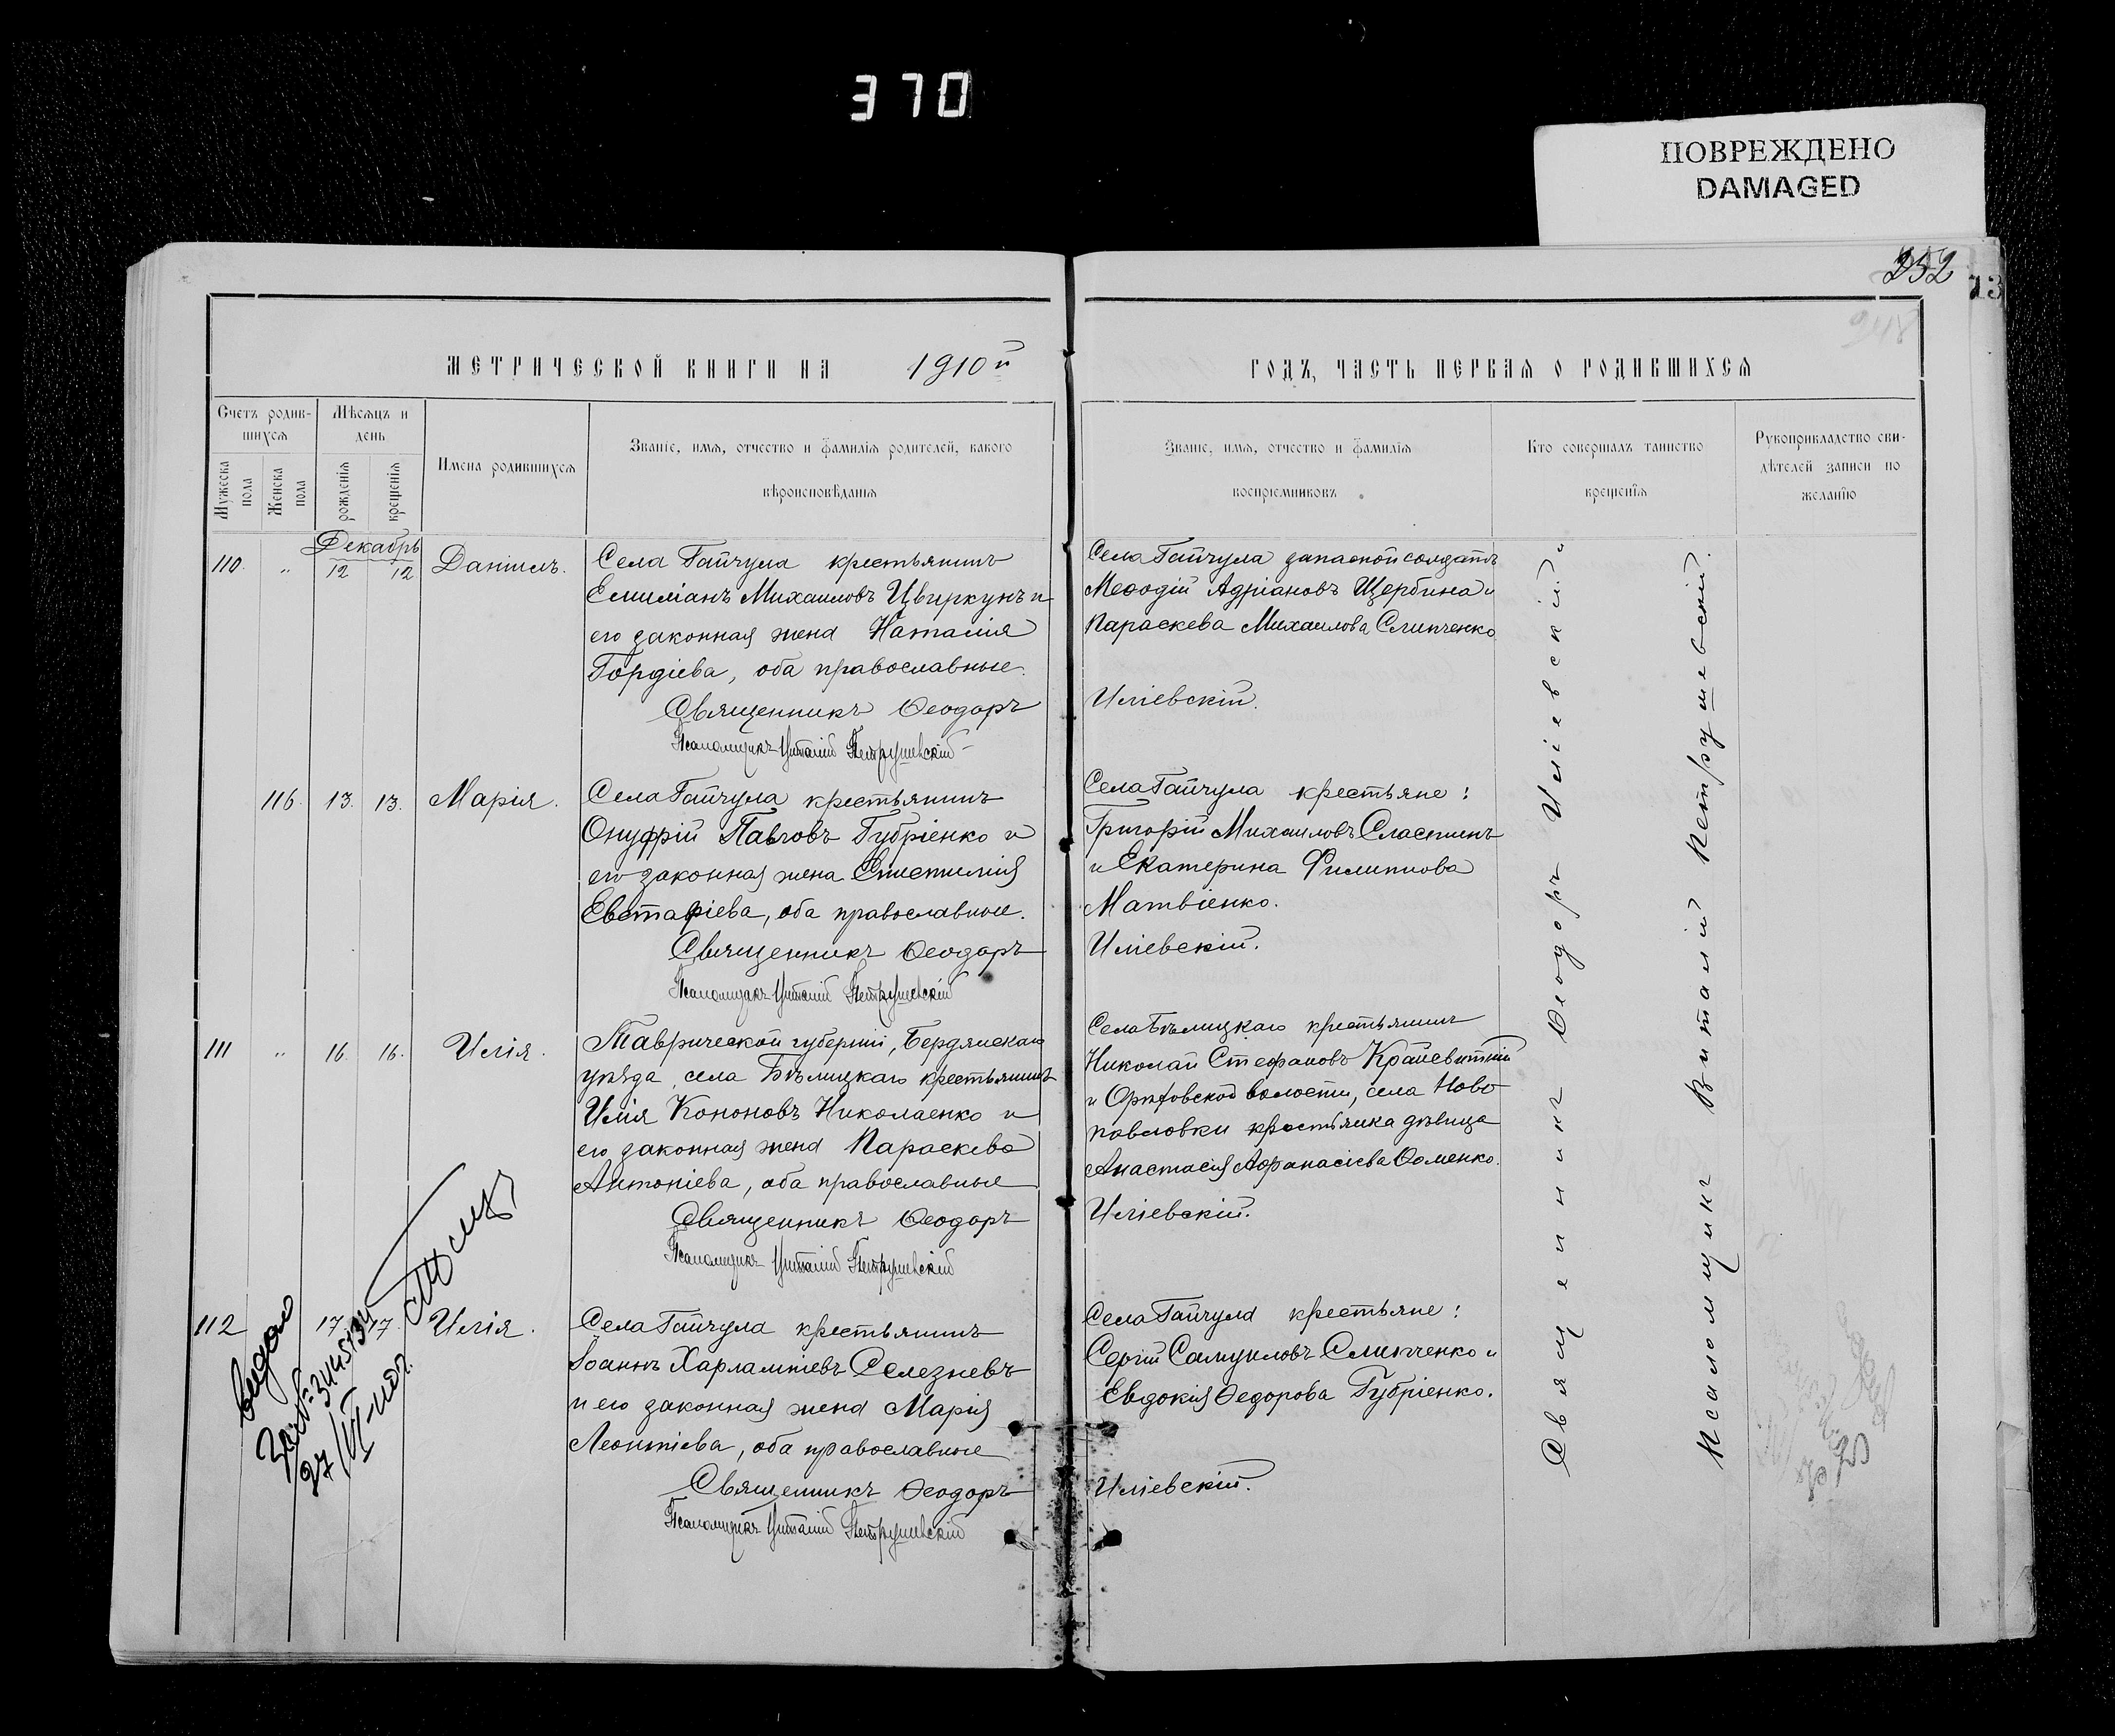 370
ПОВРЕЖДЕНО
DAMAGED
252
13
МЕТРИЧЕСКОЙ КНИГИ НА 1910й ГОДЪ, ЧАСТЬ ПЕРВАЯ О РОДИВШИХСЯ
Счетъ родив-
шихся
Мужеска
пола
Женска
пола
Мѣсяцъ и
день
рожденія
крещенія
Имена родившихся
Званіе, имя, отчество и фамилія родителей, какого
вѣроисповѣданія
Званіе, имя, отчество и фамилія
воспріемниковъ
Кто совершалъ таинство
крещенія
Рукоприкладство сви-
дѣтелей записи по
желанію
Декабрь
110. " 12 12 Даніилъ.
Села Гайчула крестьянинъ
Емиліанъ Михаиловъ Цвиркунъ и
его законная жена Наталія
Гордіева, оба православные.
Священникъ Ѳеодоръ Иліевскій.
Псаломщикъ Виталій Петрушевскій
Села Гайчула запасной солдатъ
Меѳодій Адріановъ Щербина и
Параскева Михаилова Слипченко
116. 13. 13. Марія.
Села Гайчула крестьянинъ
Онуфрій Павловъ Губріенко и
его законная жена Епистимія
Евстафіева, оба православные.
Священникъ Ѳеодоръ Иліевскій.
Псаломщикъ Виталій Петрушевскій
Села Гайчула крестьяне:
Григорій Михаиловъ Сластинъ
и Екатерина Филиппова
Матвіенко.
111 " 16. 16. Илія.
Таврической губерніи, Бердянскаго
уѣзда, села Бѣлицкаго крестьянинъ
Илія Кононовъ Николаенко и
его законная жена Параскева
Антоніева, оба православные
Священникъ Ѳеодоръ Иліевскій.
Псаломщикъ Виталій Петрушевскій
Села Бѣлицкаго крестьянинъ
Николай Стефановъ
и Орѣховской волости, села Ново-
павловки крестьянка дѣвица
Анастасія Афанасіева Ѳоменко.
112 17. 17. Илія.
Села Гайчула крестьянинъ
Іоаннъ Харлампіевъ Селезневъ
и его законная жена Марія
Леонтіева, оба православные
Священникъ Ѳеодоръ Иліевскій.
Псаломщикъ Виталій Петрушевскій
Села Гайчула крестьяне:
Сергій Самуиловъ Слипченко и
Евдокія Ѳедорова Губріенко.
Священникъ Ѳеодоръ Иліевскій
Псаломщикъ Виталій Петрушевскій.
видано